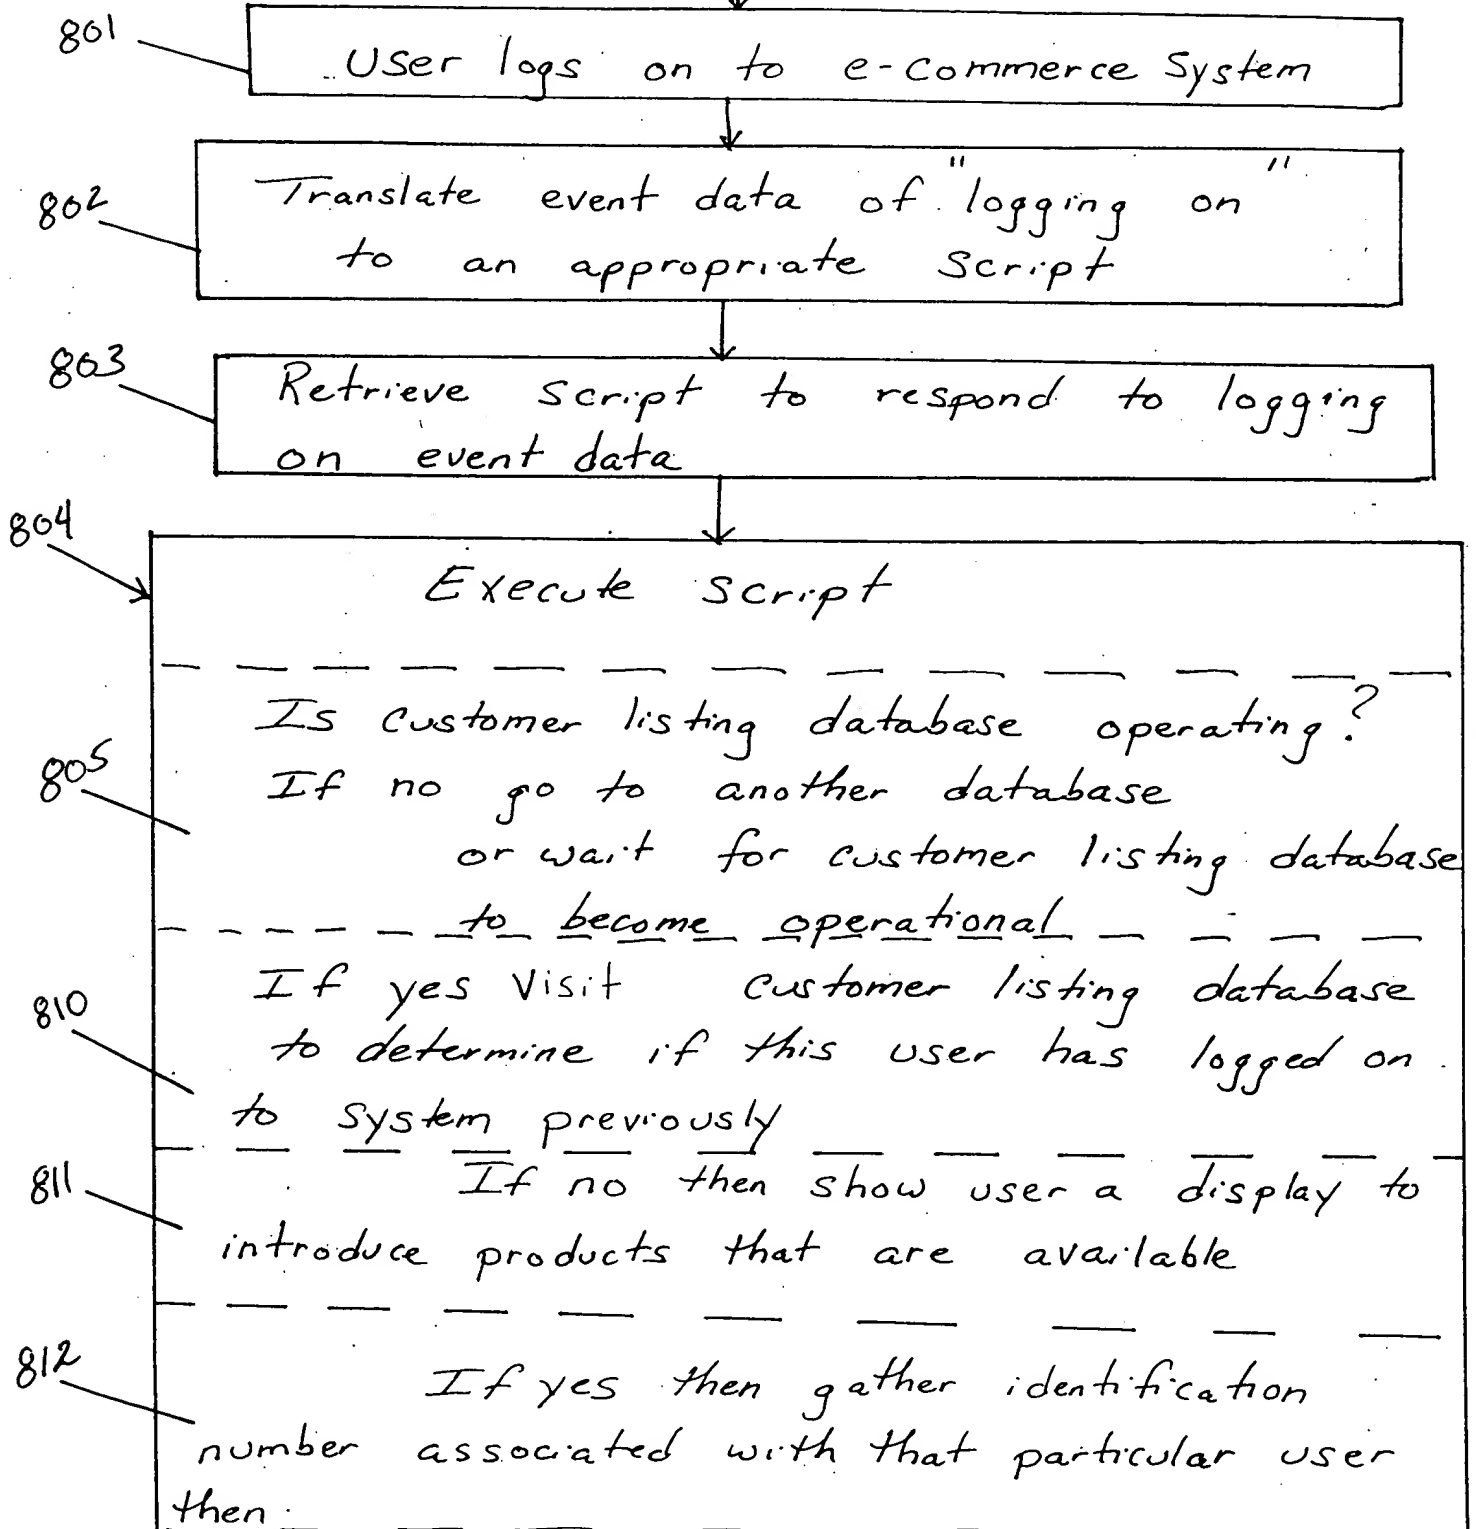 801
User logs on to e-commerce System
802
Translate event data of "logging on"
to an appropriate Script
803
Retrieve Script to respond to logging
on event data
804
Execute Script
Is customer listing database operating?
805
If no go to another database
or wait for customer listing database
to become operational
If yes Visit customer listing database
810
to determine if this user has logged on
to system previously
811
If no then show user a display to
introduce products that are available
812
If yes then gather identification
number associated with that particular user
then